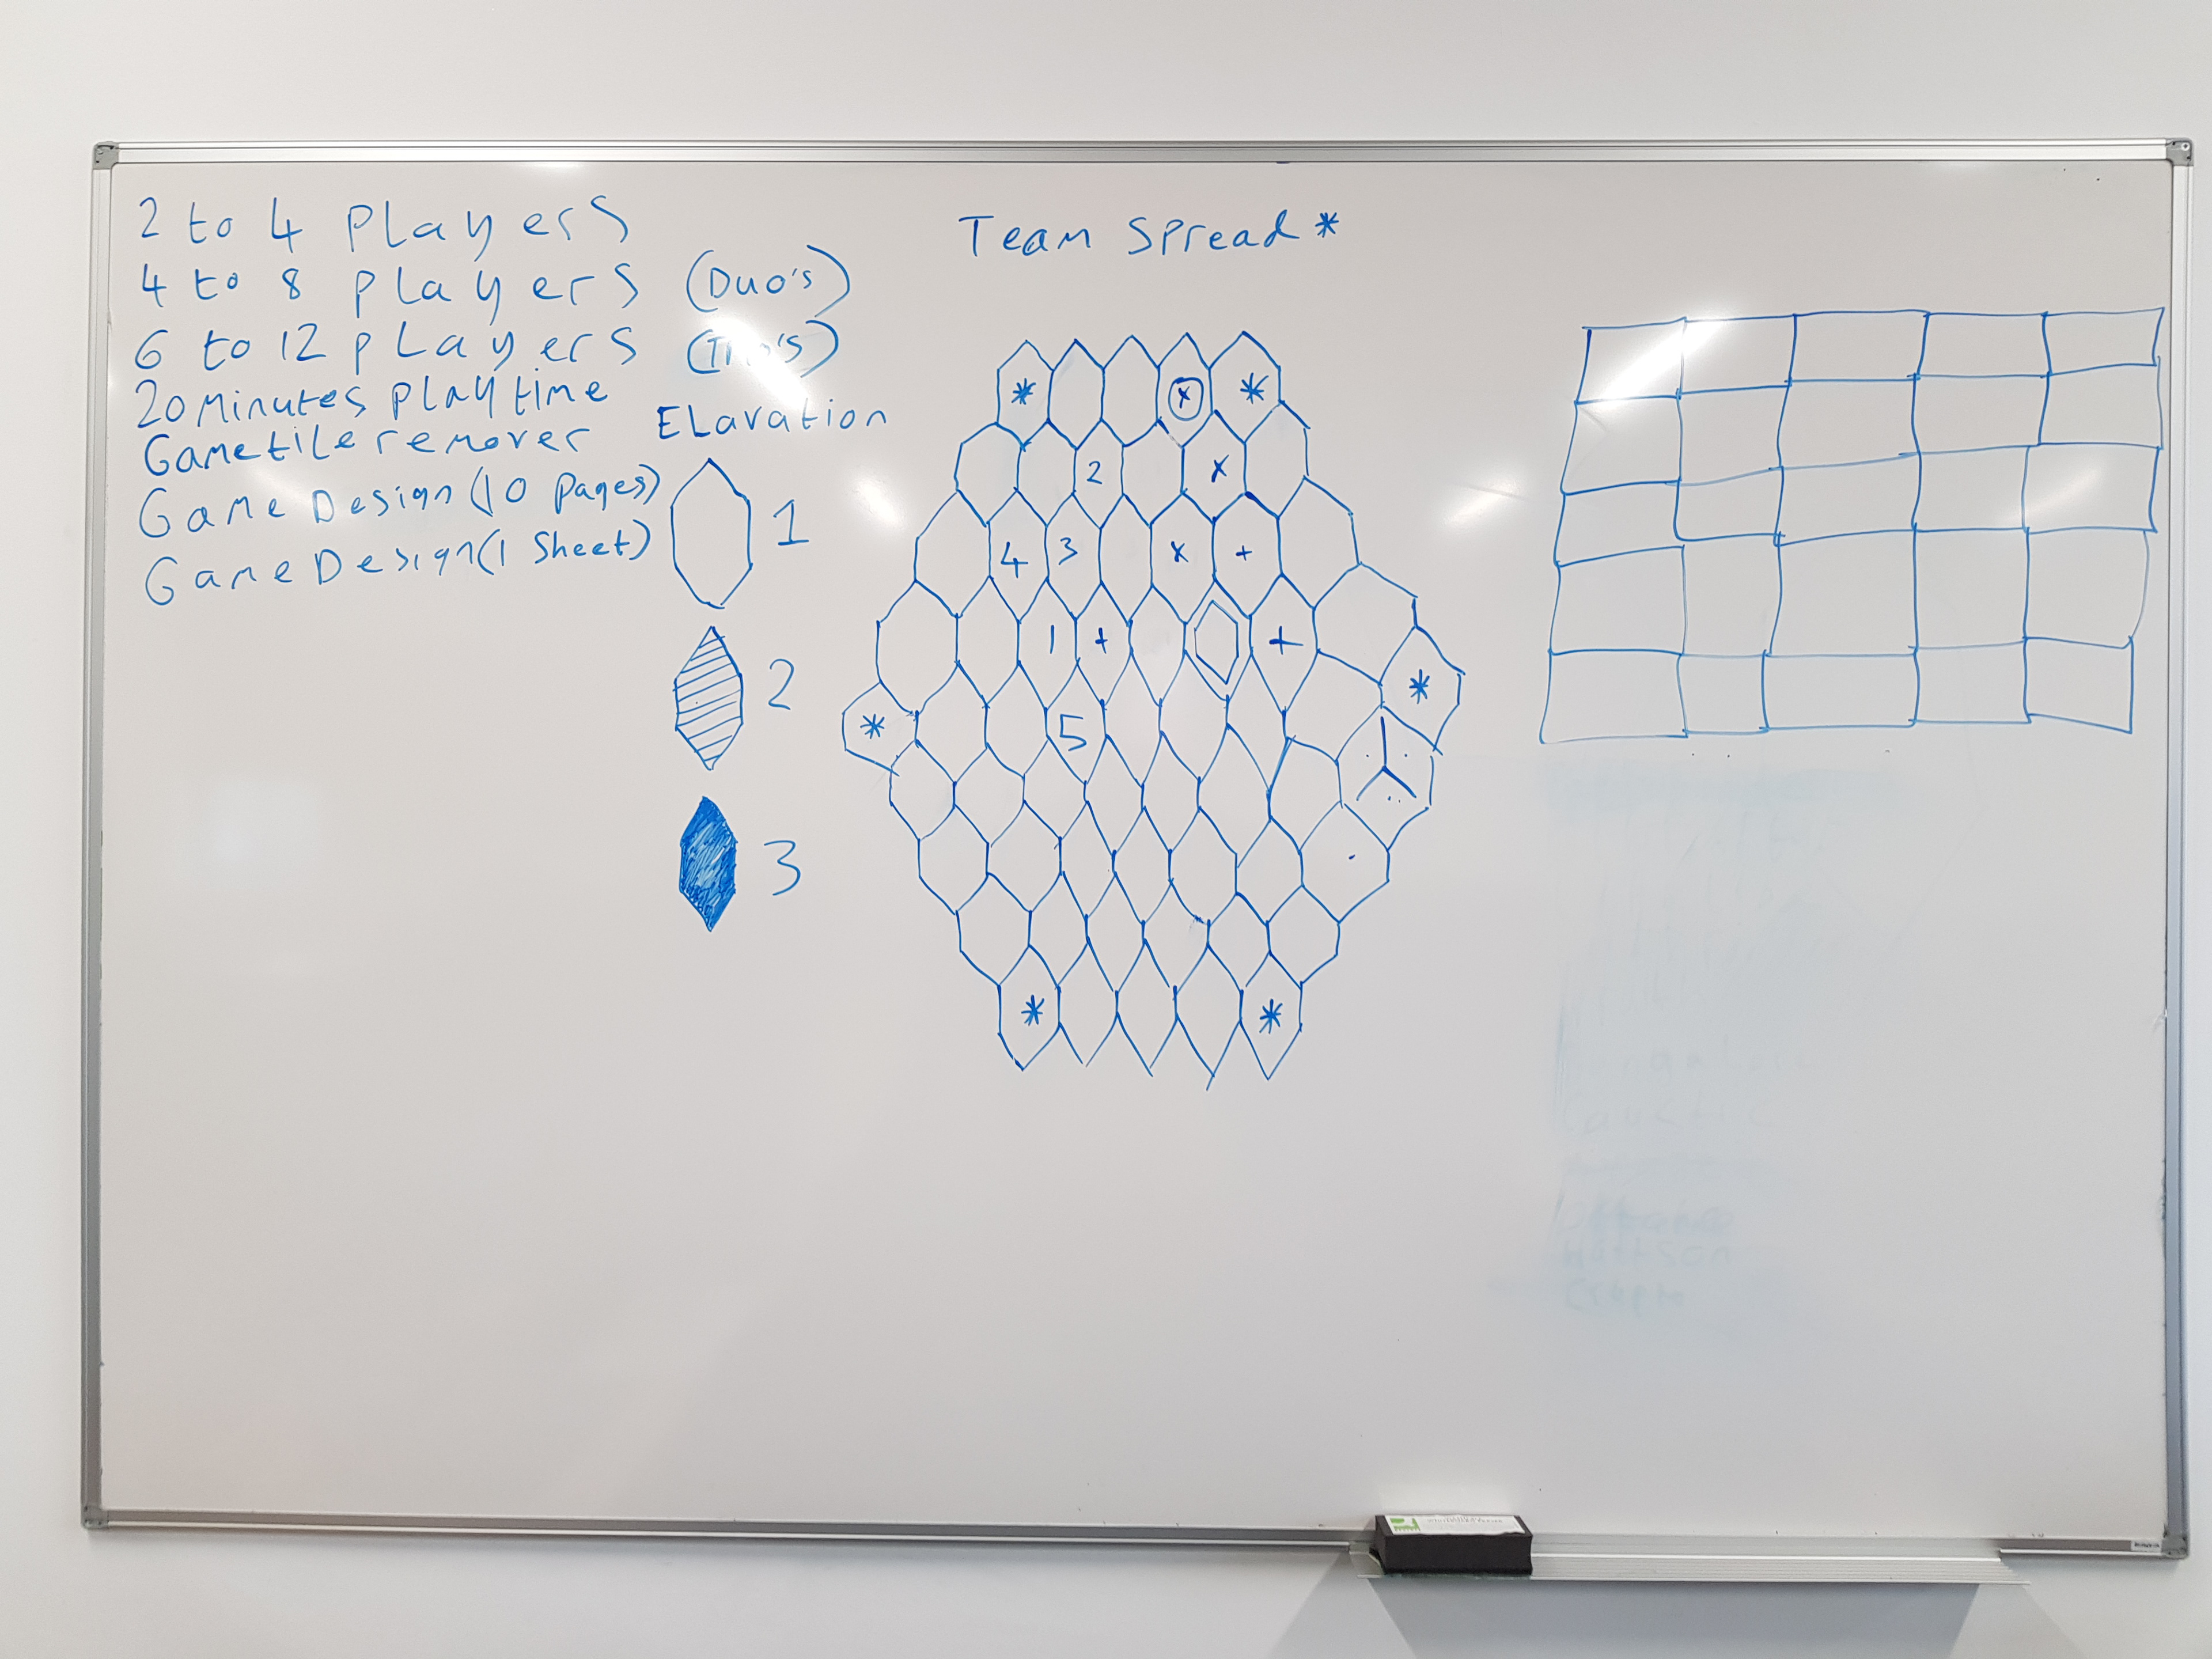 2 to 4 Players
4 to 8 players (Duo's)
6 to 12 players
20 Minutes playtime
Gametile remover
Game Design (10 pages)
Game Design (1 Sheet)
Elavation
1
2
3
Team Spread *
* x *
2 x
4 3 x +
1 + +
*
* 5
* *